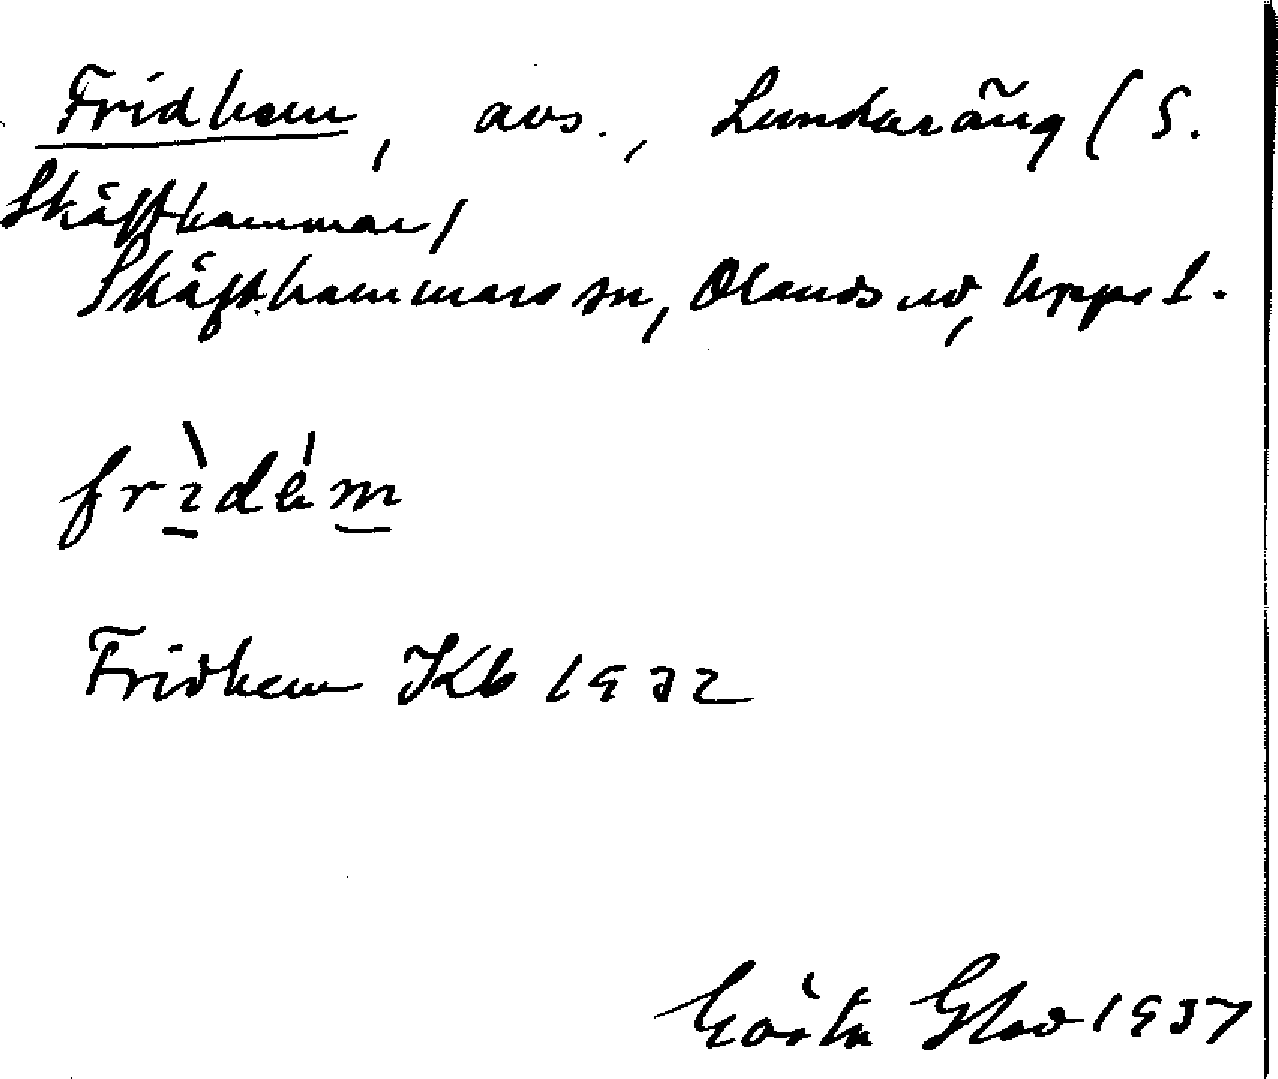 Fridhem, avs., Lundaräng (S.
Skäfthammar)
Skäfthammars sn, Olands hd, Uppsl.
fri̱dem̱
Fridhem Kb 1932
Gösta Glad 1937